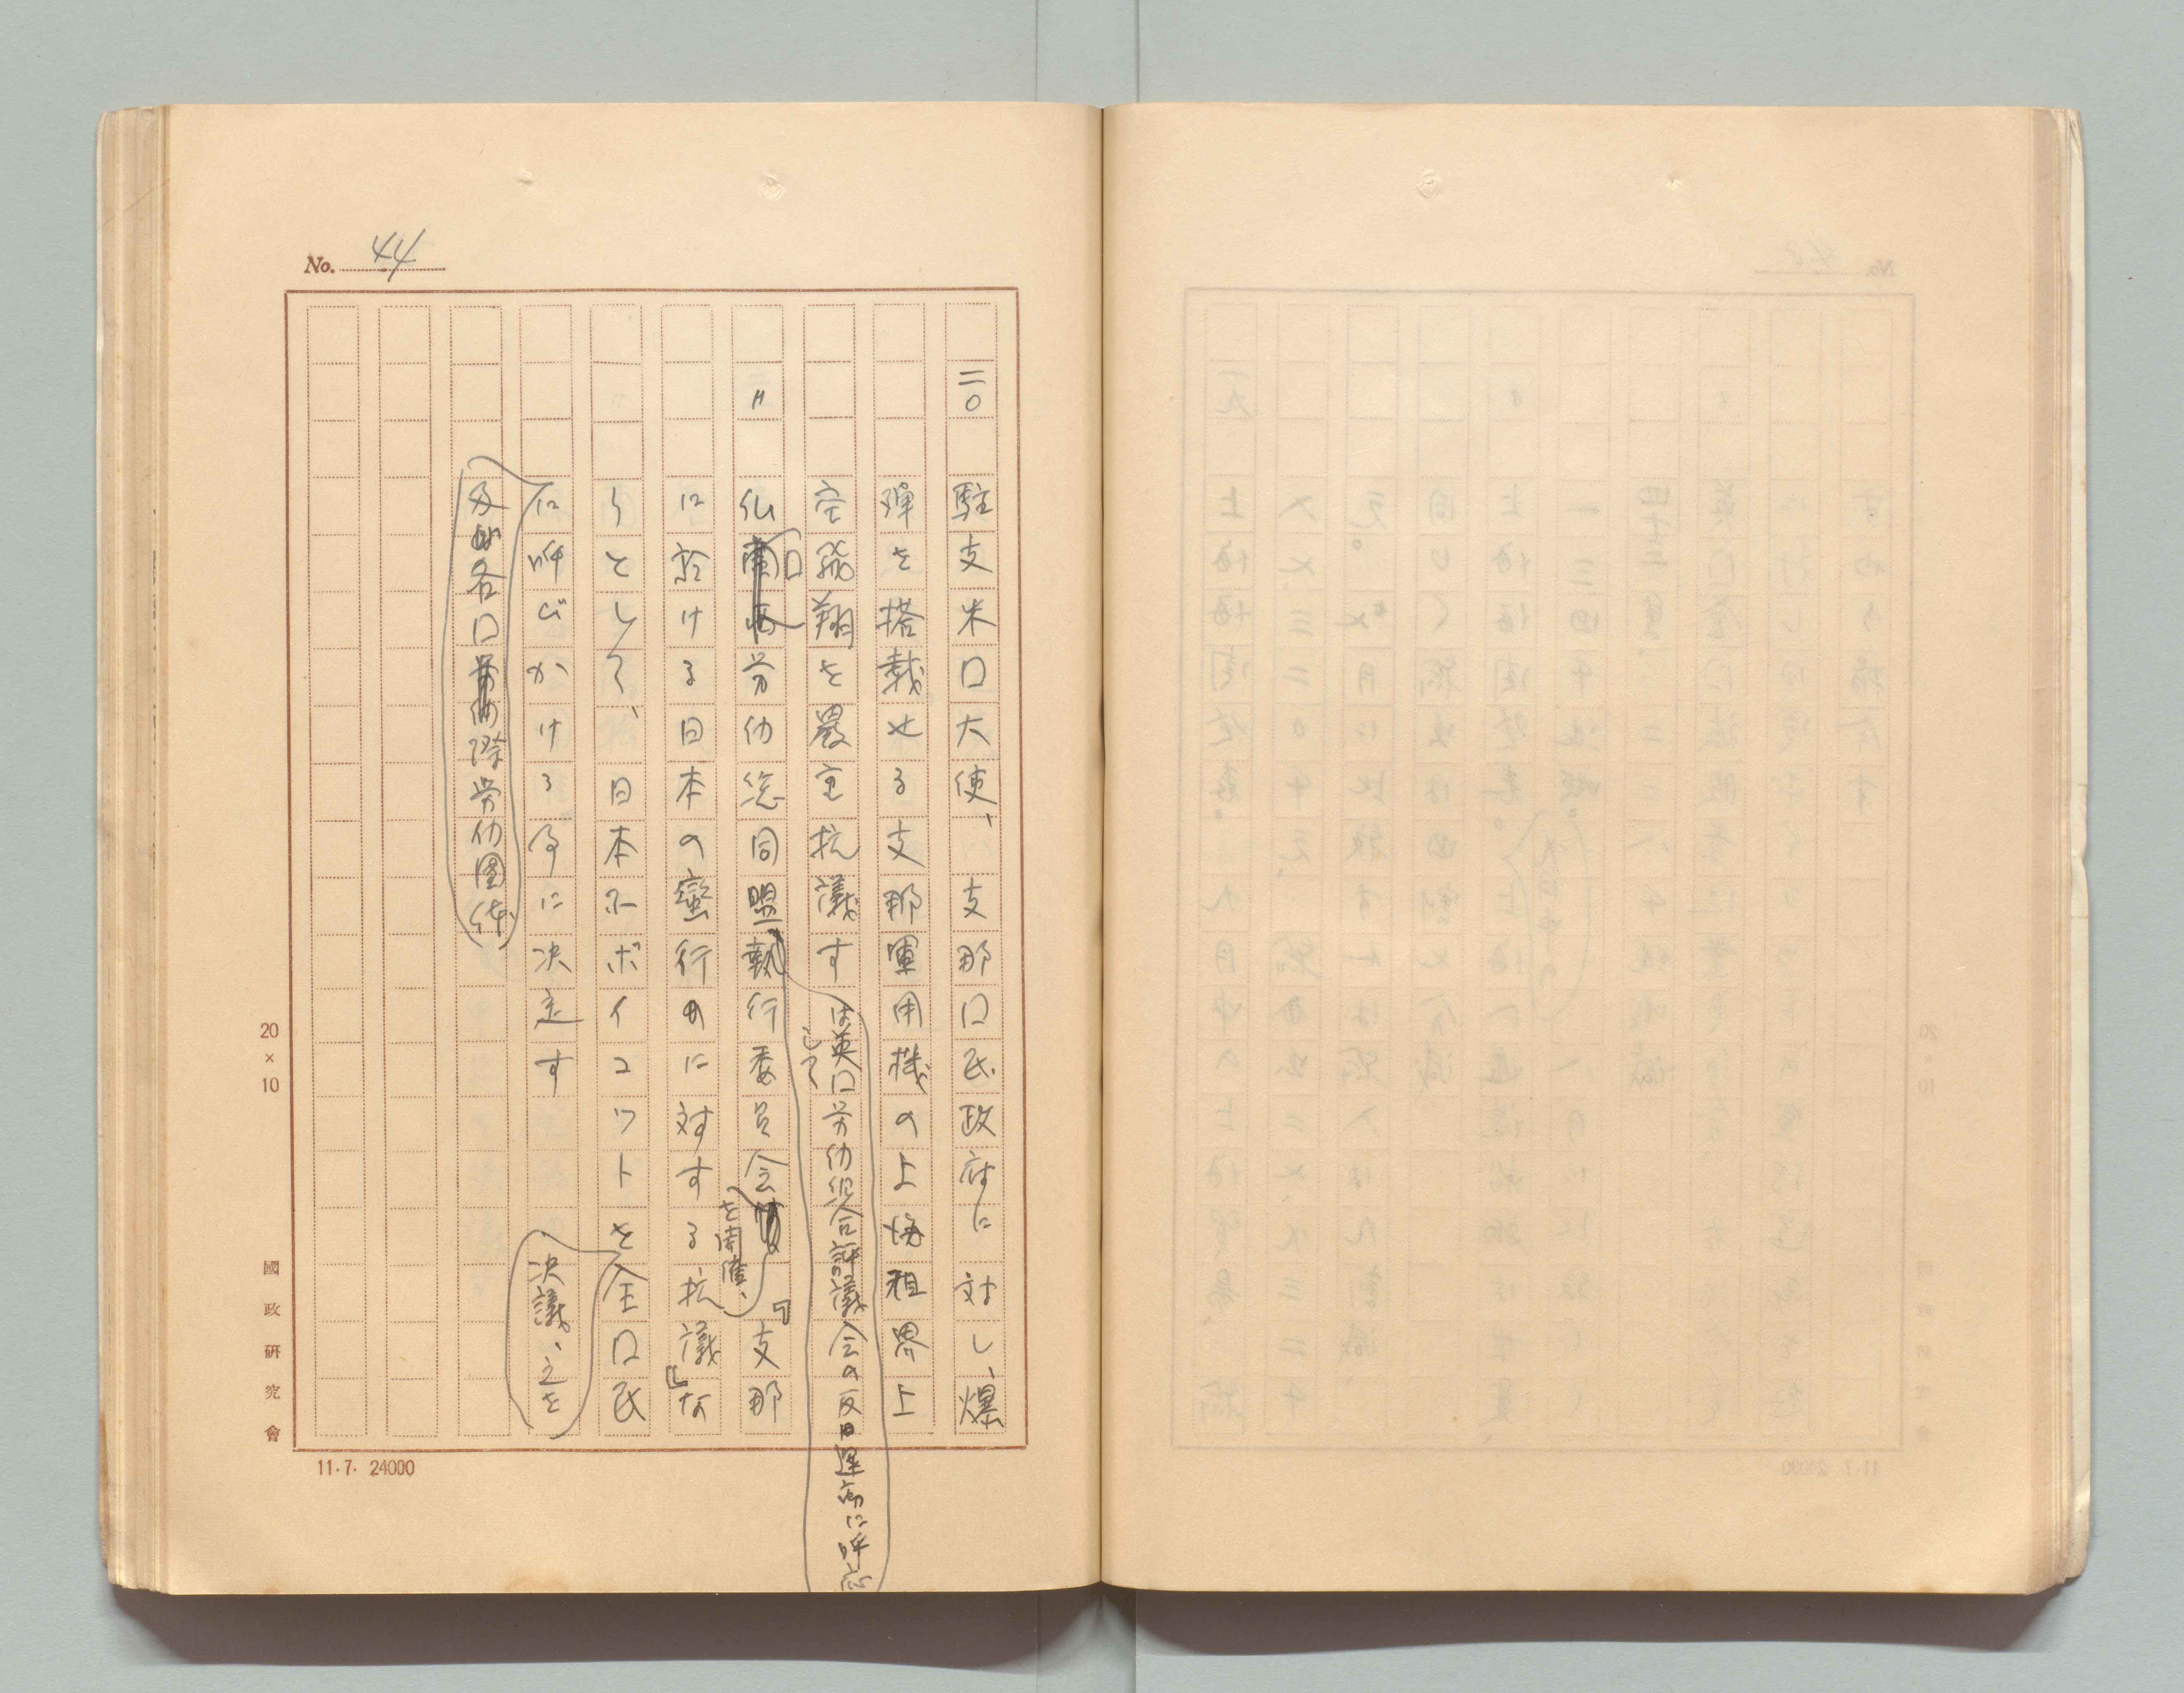 No. 44
二〇 駐支米口大使、支那口民政府に対し、爆
弾を搭載せる支那軍用機の上海租界上
空飛翔を厳重抗議す
は英口労仂組合評議会の反日運動に呼応
して
〃 仏口労仂総同盟執行委員会『支那
を開催、
に於ける日本の蛮行に対する抗議』な
りとして、日本品ボイコツトを全口民
決議、之を
に呼びかける事に決定す
及各口際労仂団体
20×10
國政研究會
11.7. 24000